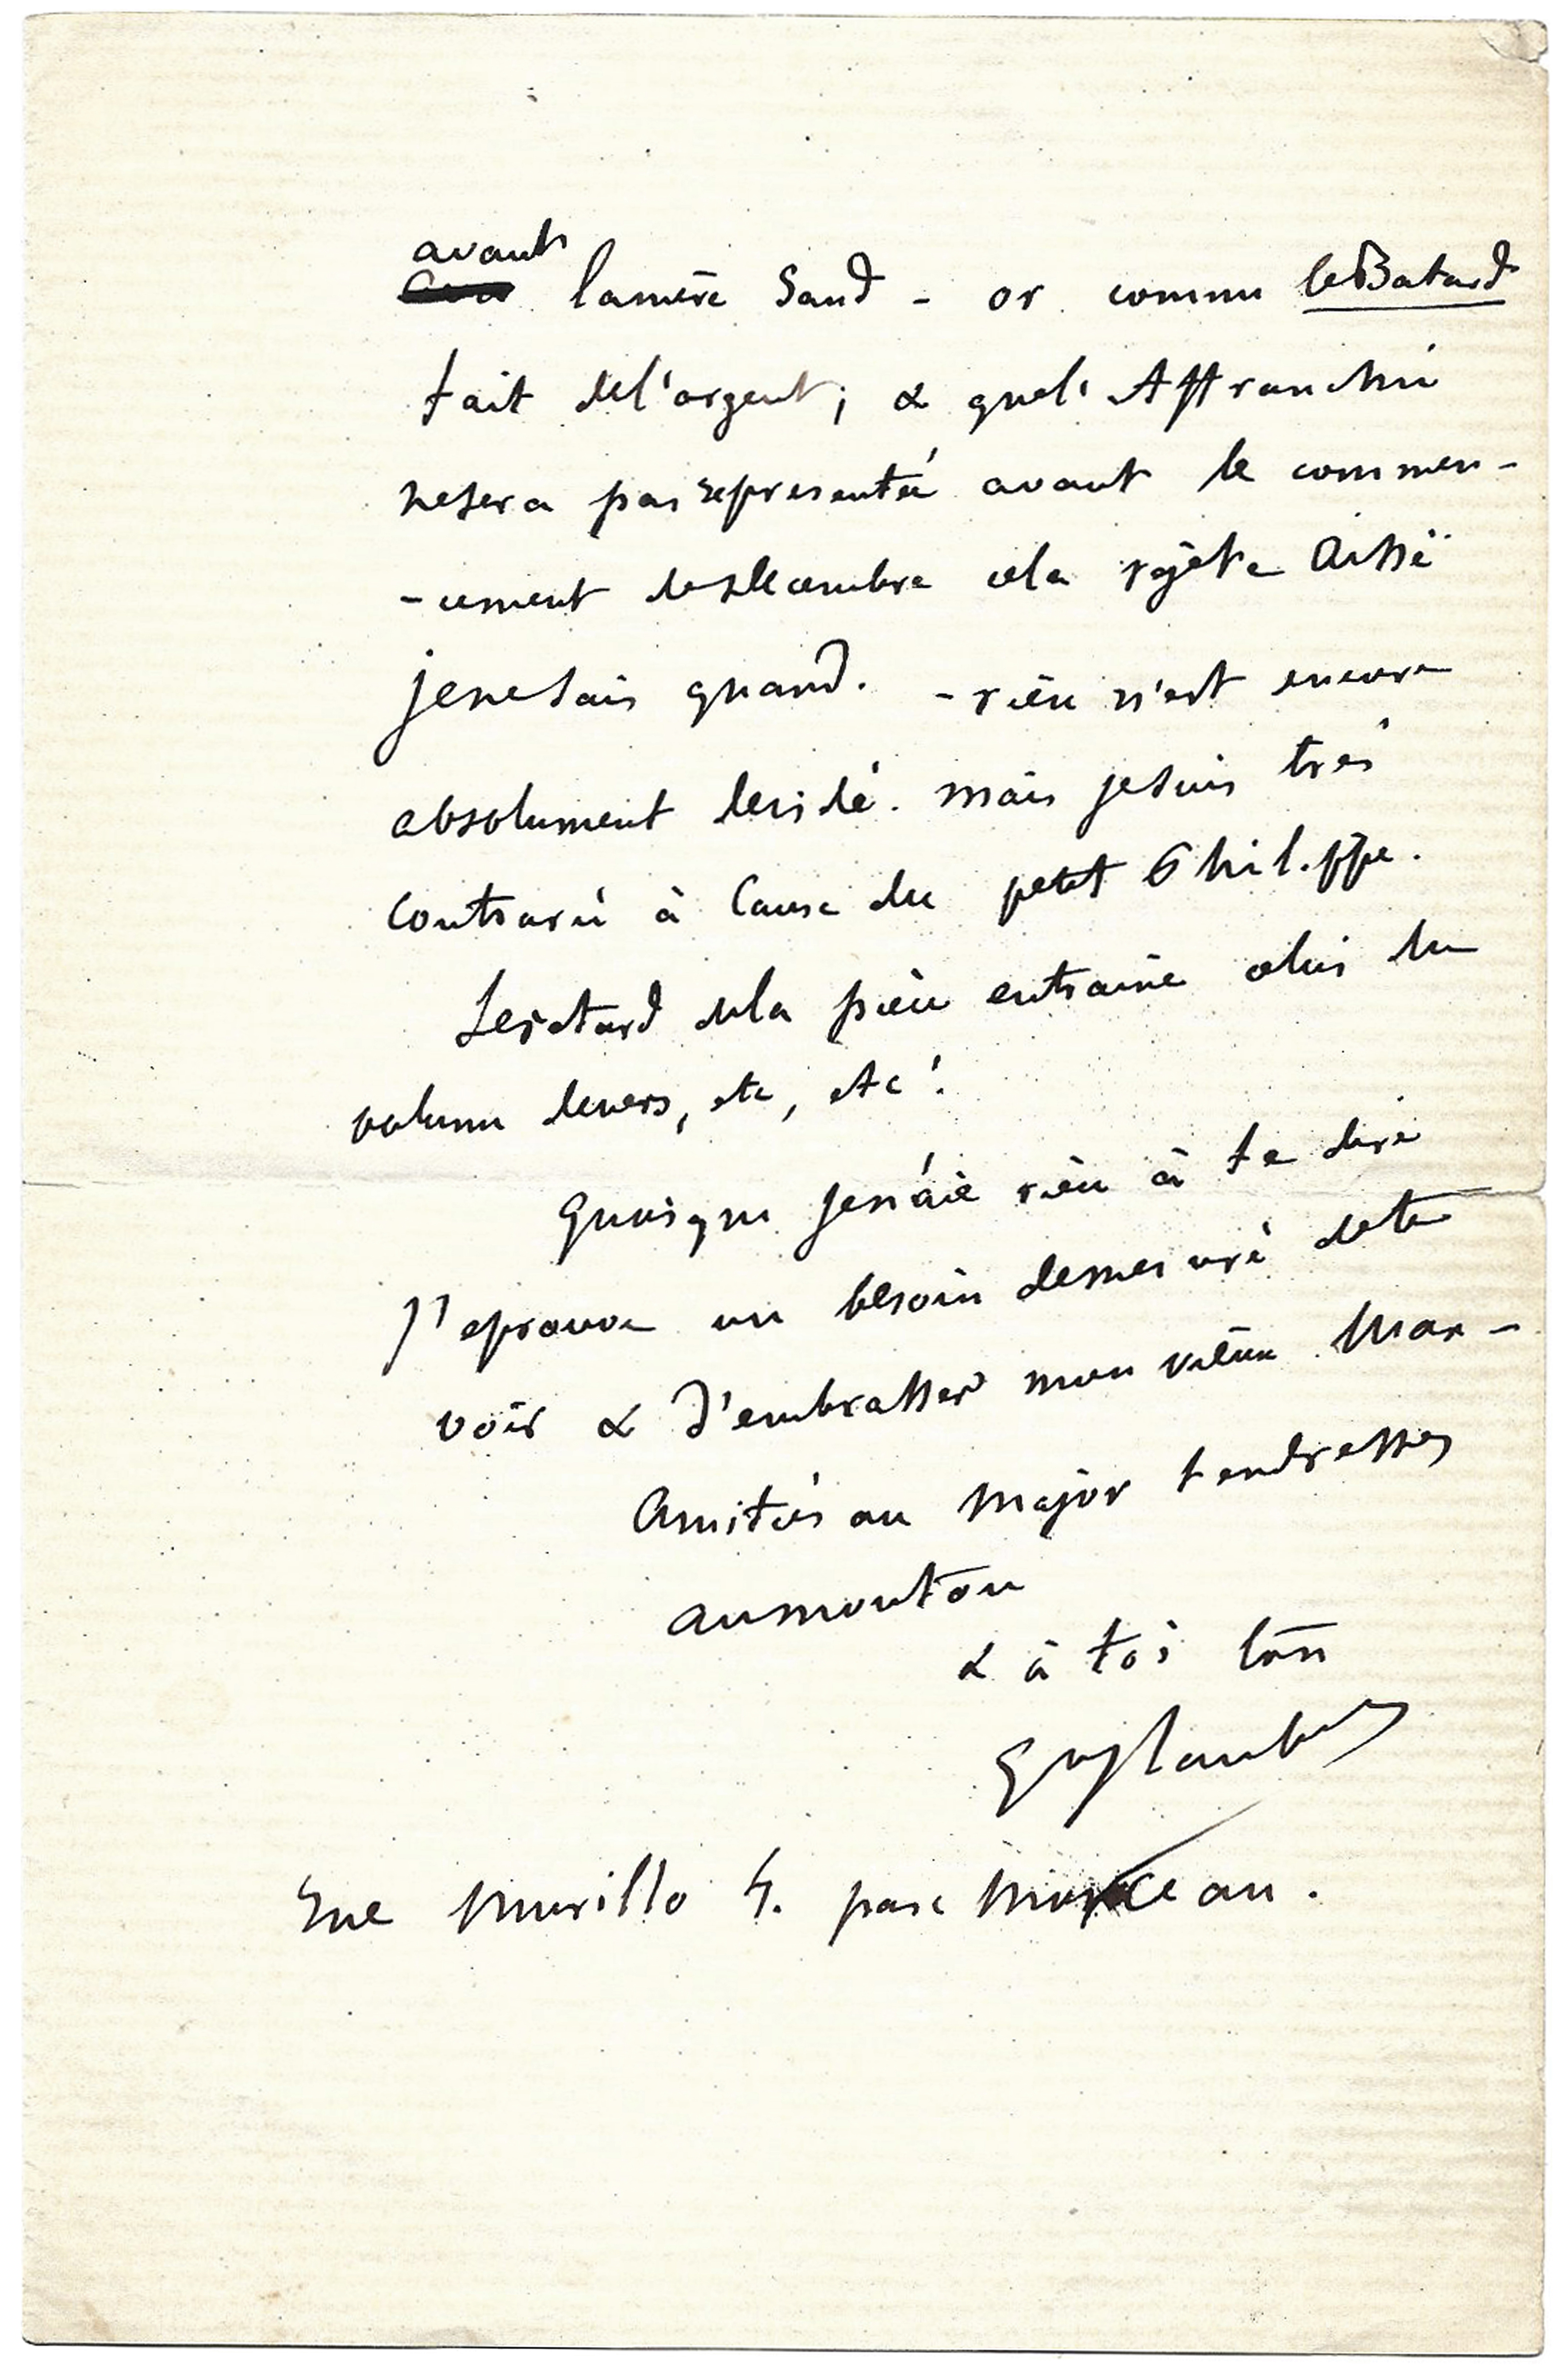 avant
la mère Sand - or comme le Batard
fait de l'argent ; & que l'Affranchi
ne sera pas representée avant le commen-
-cement de Xbre cela rejète Aïssé
je ne sais quand. - rien n'est encore
absolument decidé. mais je suis très
contrarié à cause du petit Philippe.
Le retard de la pièce entraine celui du
volume de vers, etc, etc !
Quoique je n'aie rien à te dire
J'eprouve un besoin demesuré de te
voir & d'embrasser mon vieux Max -
Amitiés au Major tendresses
au mouton
& à toi ton
Gve Flaubert
rue Murillo 4. parc Monceau.